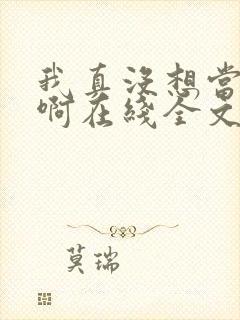 我真没想当
啊在线全文
莫瑞